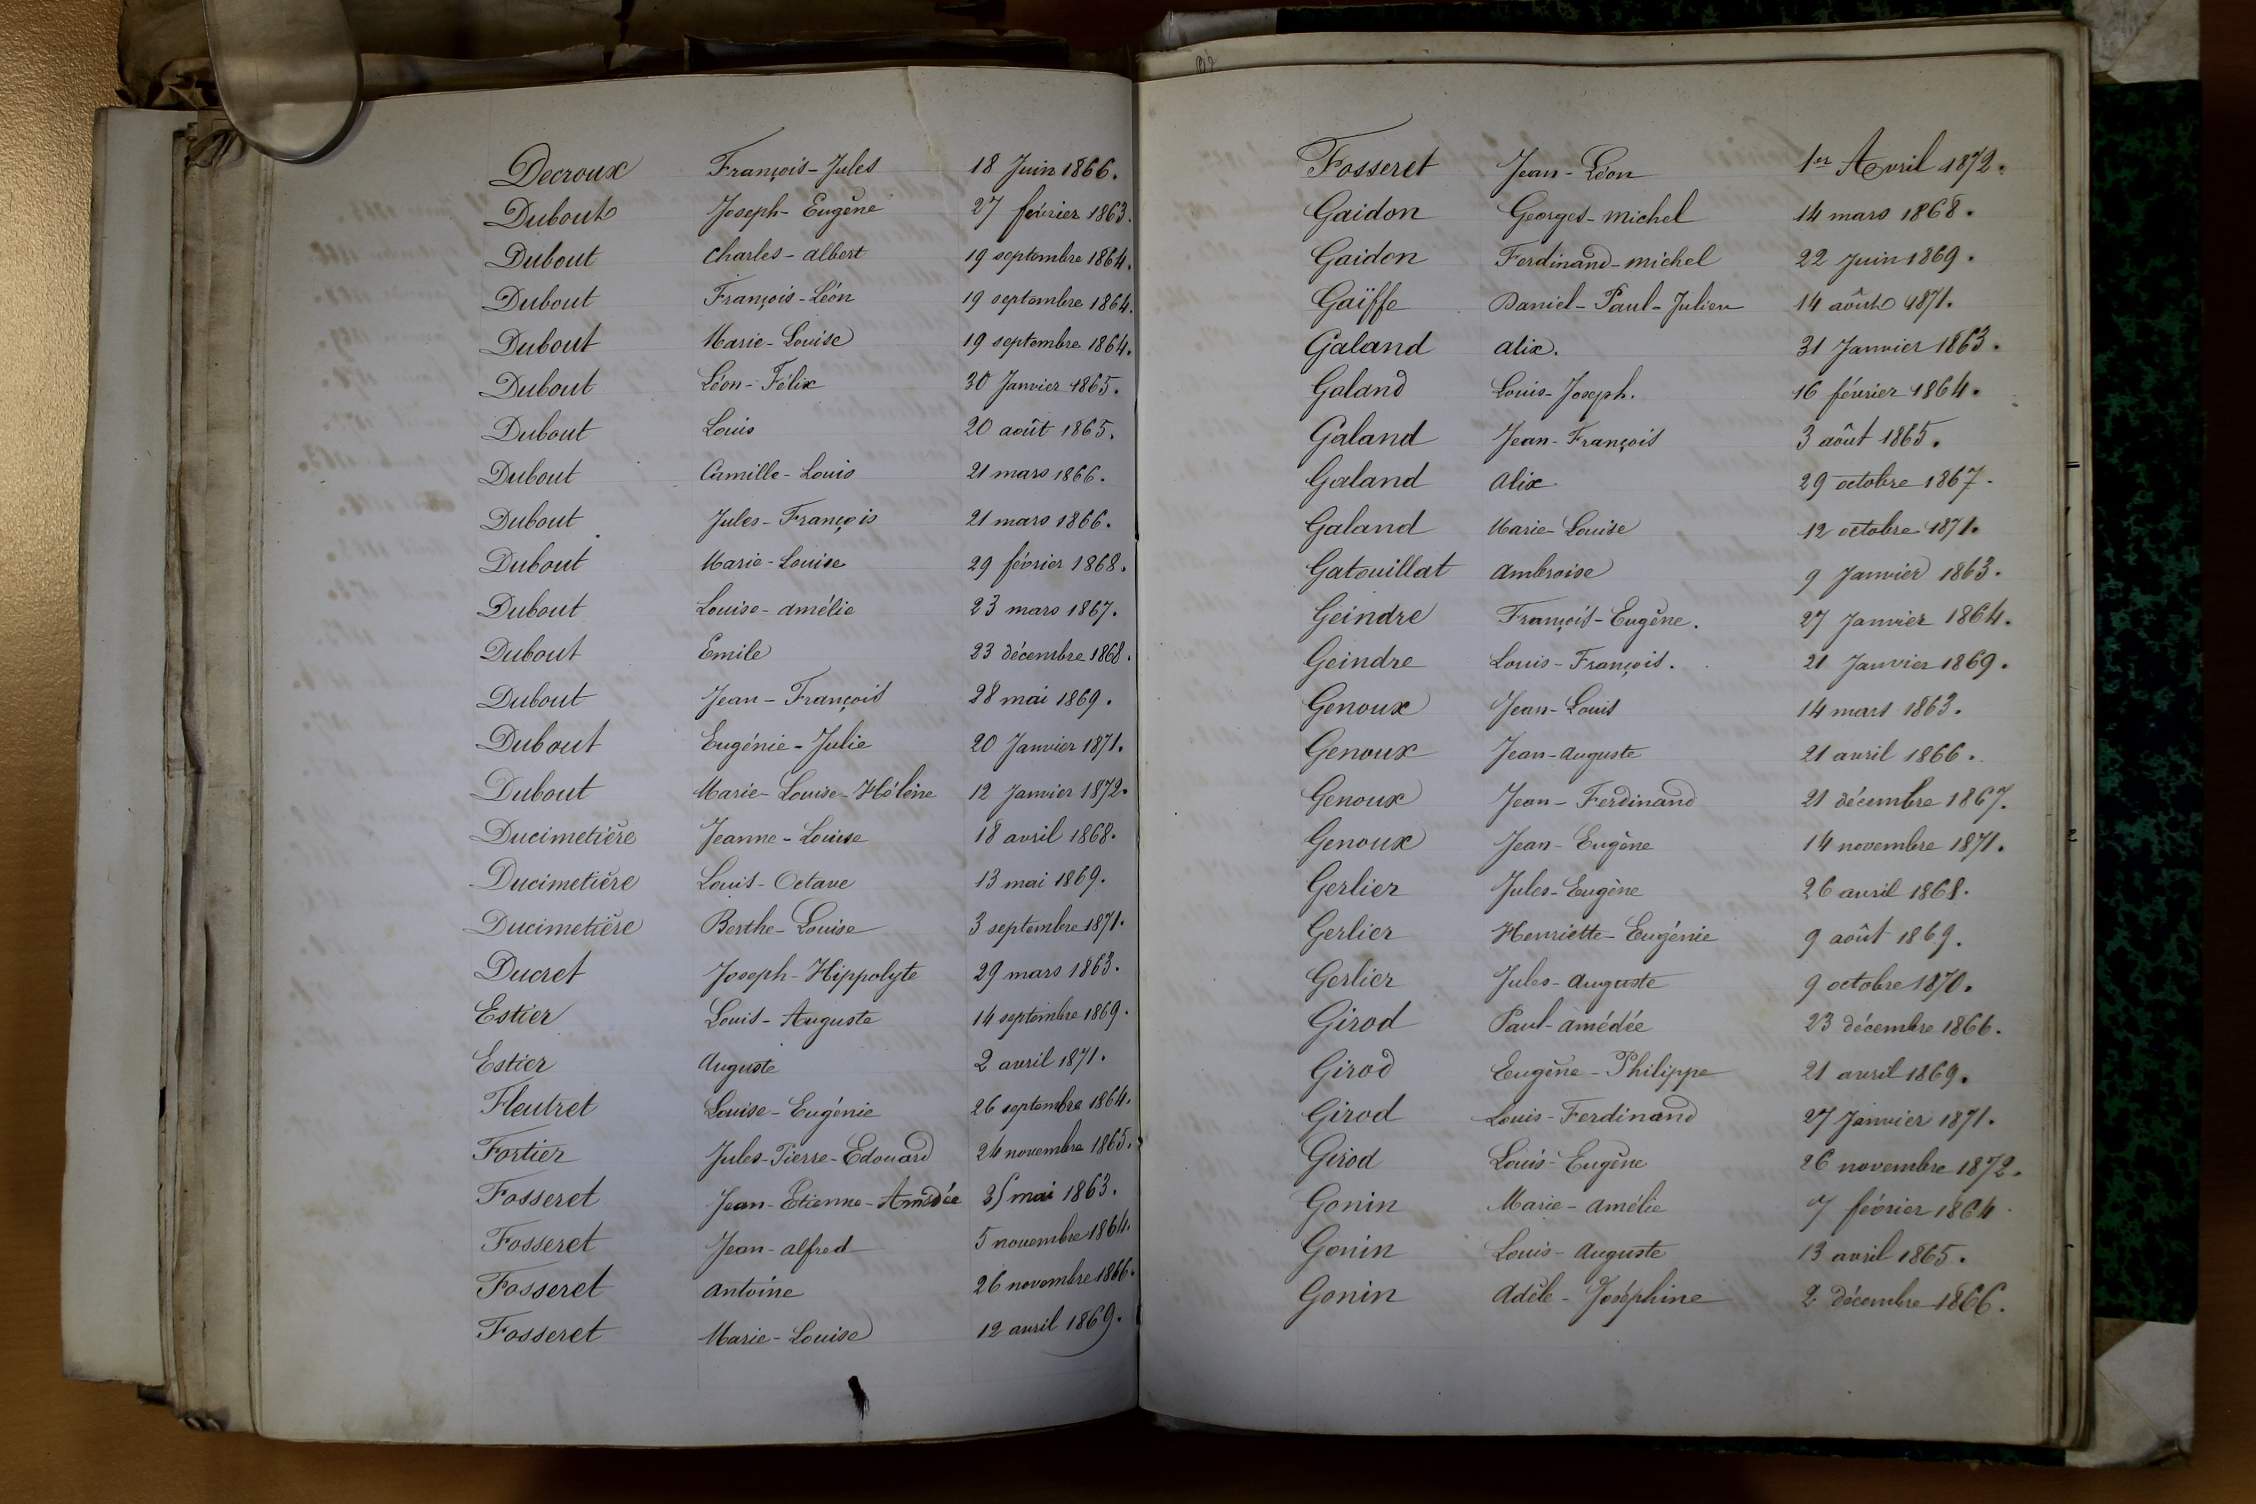 Decroux François-Jules 18 Juin 1866.
Dubout Joseph-Eugène 27 février 1863.
Dubout Charles-albert 19 septembre 1864.
Dubout François-Léon 19 septembre 1864.
Dubout Marie-Louise 19 septembre 1864.
Dubout Léon-Félix 30 Janvier 1865.
Dubout Louis 20 août 1865.
Dubout Camille-Louis 21 mars 1866.
Dubout Jules-François 21 mars 1866.
Dubout Marie-Louise 29 février 1868.
Dubout Louise-amélie 23 mars 1867.
Dubout Emile 23 décembre 1868.
Dubout Jean-François 28 mai 1869.
Dubout Eugénie-Julie 20 Janvier 1871.
Dubout Marie-Louise-Hélène 12 Janvier 1872.
Ducimetière Jeanne-Louise 18 avril 1868.
Ducimetière Louis-Octave 13 mai 1869.
Ducimetière Berthe-Louise 3 septembre 1871.
Ducret Joseph-Hippolyte 29 mars 1863.
Estier Louis-Auguste 14 septembre 1869.
Estier Auguste 2 avril 1871.
Fleutret Louise-Eugénie 26 septembre 1864.
Fortier Jules-Pierre-Edouard 24 novembre 1865.
Fosseret Jean-Etienne-Amédée mai 1863.
Fosseret Jean-alfred 5 novembre 1864.
Fosseret antoine 26 novembre 1866.
Fosseret Marie-Louise 12 avril 1869.
Fosseret Jean-Léon 1er Avril 1872.
Gaidon Georges-michel 14 mars 1868.
Gaidon Ferdinand-michel 22 Juin 1869.
Gaïffe Daniel-Paul-Julien 14 aôut 1871.
Galand alix. 31 Janvier 1863.
Galand Louis-Joseph. 16 février 1864.
Galand Jean-François 3 aôut 1865.
Galand alix 29 octobre 1867.
Galand Marie-Louise 12 octobre 1871.
Gatouillat ambroise 9 Janvier 1863.
Geindre François-Eugène. 27 Janvier 1864.
Geindre Louis-François. 21 Janvier 1869.
Genoux Jean-Louis 14 mars 1863.
Genoux Jean-auguste 21 avril 1866.
Genoux Jean-Ferdinand 21 décembre 1867.
Genoux Jean-Eugène 14 novembre 1871.
Gerlier Jules-Eugène 26 avril 1868.
Gerlier Henriette-Eugénie 9 août 1869.
Gerlier Jules-auguste 9 octobre 1870.
Girod Paul-amédée 23 décembre 1866.
Girod Eugène-Philippe 21 avril 1869.
Girod Louis-Ferdinand 27 Janvier 1871.
Girod Louis-Eugène 26 novembre 1872.
Gonin Marie-amélie 7 février 1864.
Gonin Louis-auguste 13 avril 1865.
Gonin adèle-Joséphine 2 décembre 1866.